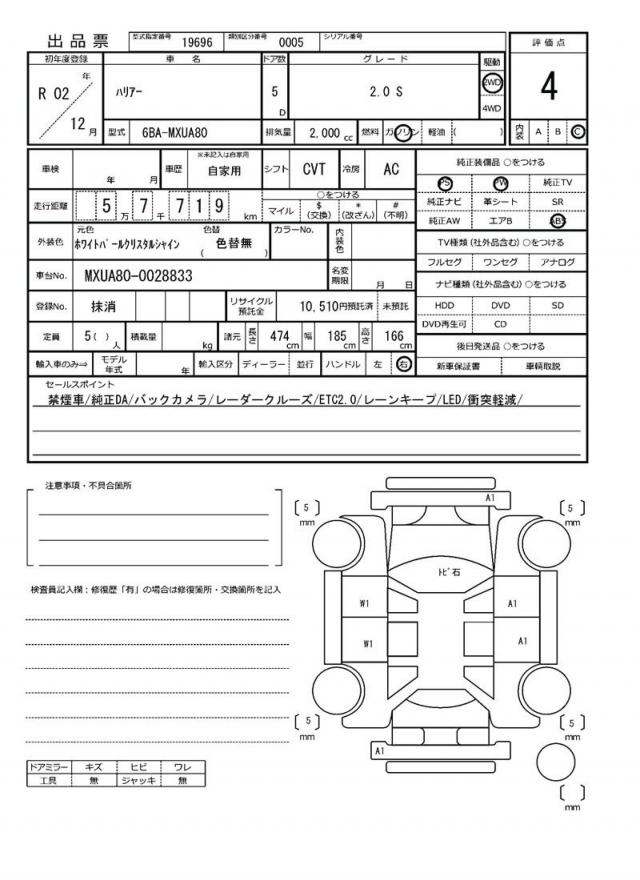 出品票 型式指定番号 19696 類別区分番号 0005 シリアル番号
初年度登録 車 名 ドア数 グレード 駆動 評価点
R 02 年 12 月 ﾊﾘｱｰ 5 D 2.0 S 2WD 4WD 4
型式 6BA-MXUA80 排気量 2,000 cc 燃料 ガソリン 軽油 ( ) 内装 A B C
車検 年 月 車歴 ※未記入は自家用 自家用 シフト CVT 冷房 AC 純正装備品 ○をつける
PS PW 純正TV
走行距離 5 万 7 千 7 1 9 km ○をつける
マイル $ (交換) * (改ざん) # (不明)
純正ナビ 革シート SR
純正AW エアB ABS
外装色 元色 ﾎﾜｲﾄﾊﾟｰﾙｸﾘｽﾀﾙｼｬｲﾝ 色替 ( 色替無 ) カラーNo. 内装色
TV種類 (社外品含む) ○をつける
フルセグ ワンセグ アナログ
車台No. MXUA80-0028833 名変期限 月 日
ナビ種類 (社外品含む) ○をつける
登録No. 抹消 リサイクル預託金 10,510円預託済 未預託
HDD DVD SD
DVD再生可 CD
定員 5( ) 人 積載量 kg 諸元 長さ 474 cm 幅 185 cm 高さ 166 cm
後日発送品 ○をつける
輸入車のみ⇒ モデル年式 年 輸入区分 ディーラー 並行 ハンドル 左 右 新車保証書 車輌取説
セールスポイント
禁煙車/純正DA/バックカメラ/レーダークルーズ/ETC2.0/レーンキープ/LED/衝突軽減/
注意事項・不具合箇所
A1
5 mm
5 mm
ﾄﾋﾞ石
検査員記入欄：修復歴「有」の場合は修復箇所・交換箇所を記入
W1 A1
W1 A1
5 mm
5 mm
A1
ドアミラー キズ ヒビ ワレ
工具 無 ジャッキ 無
mm